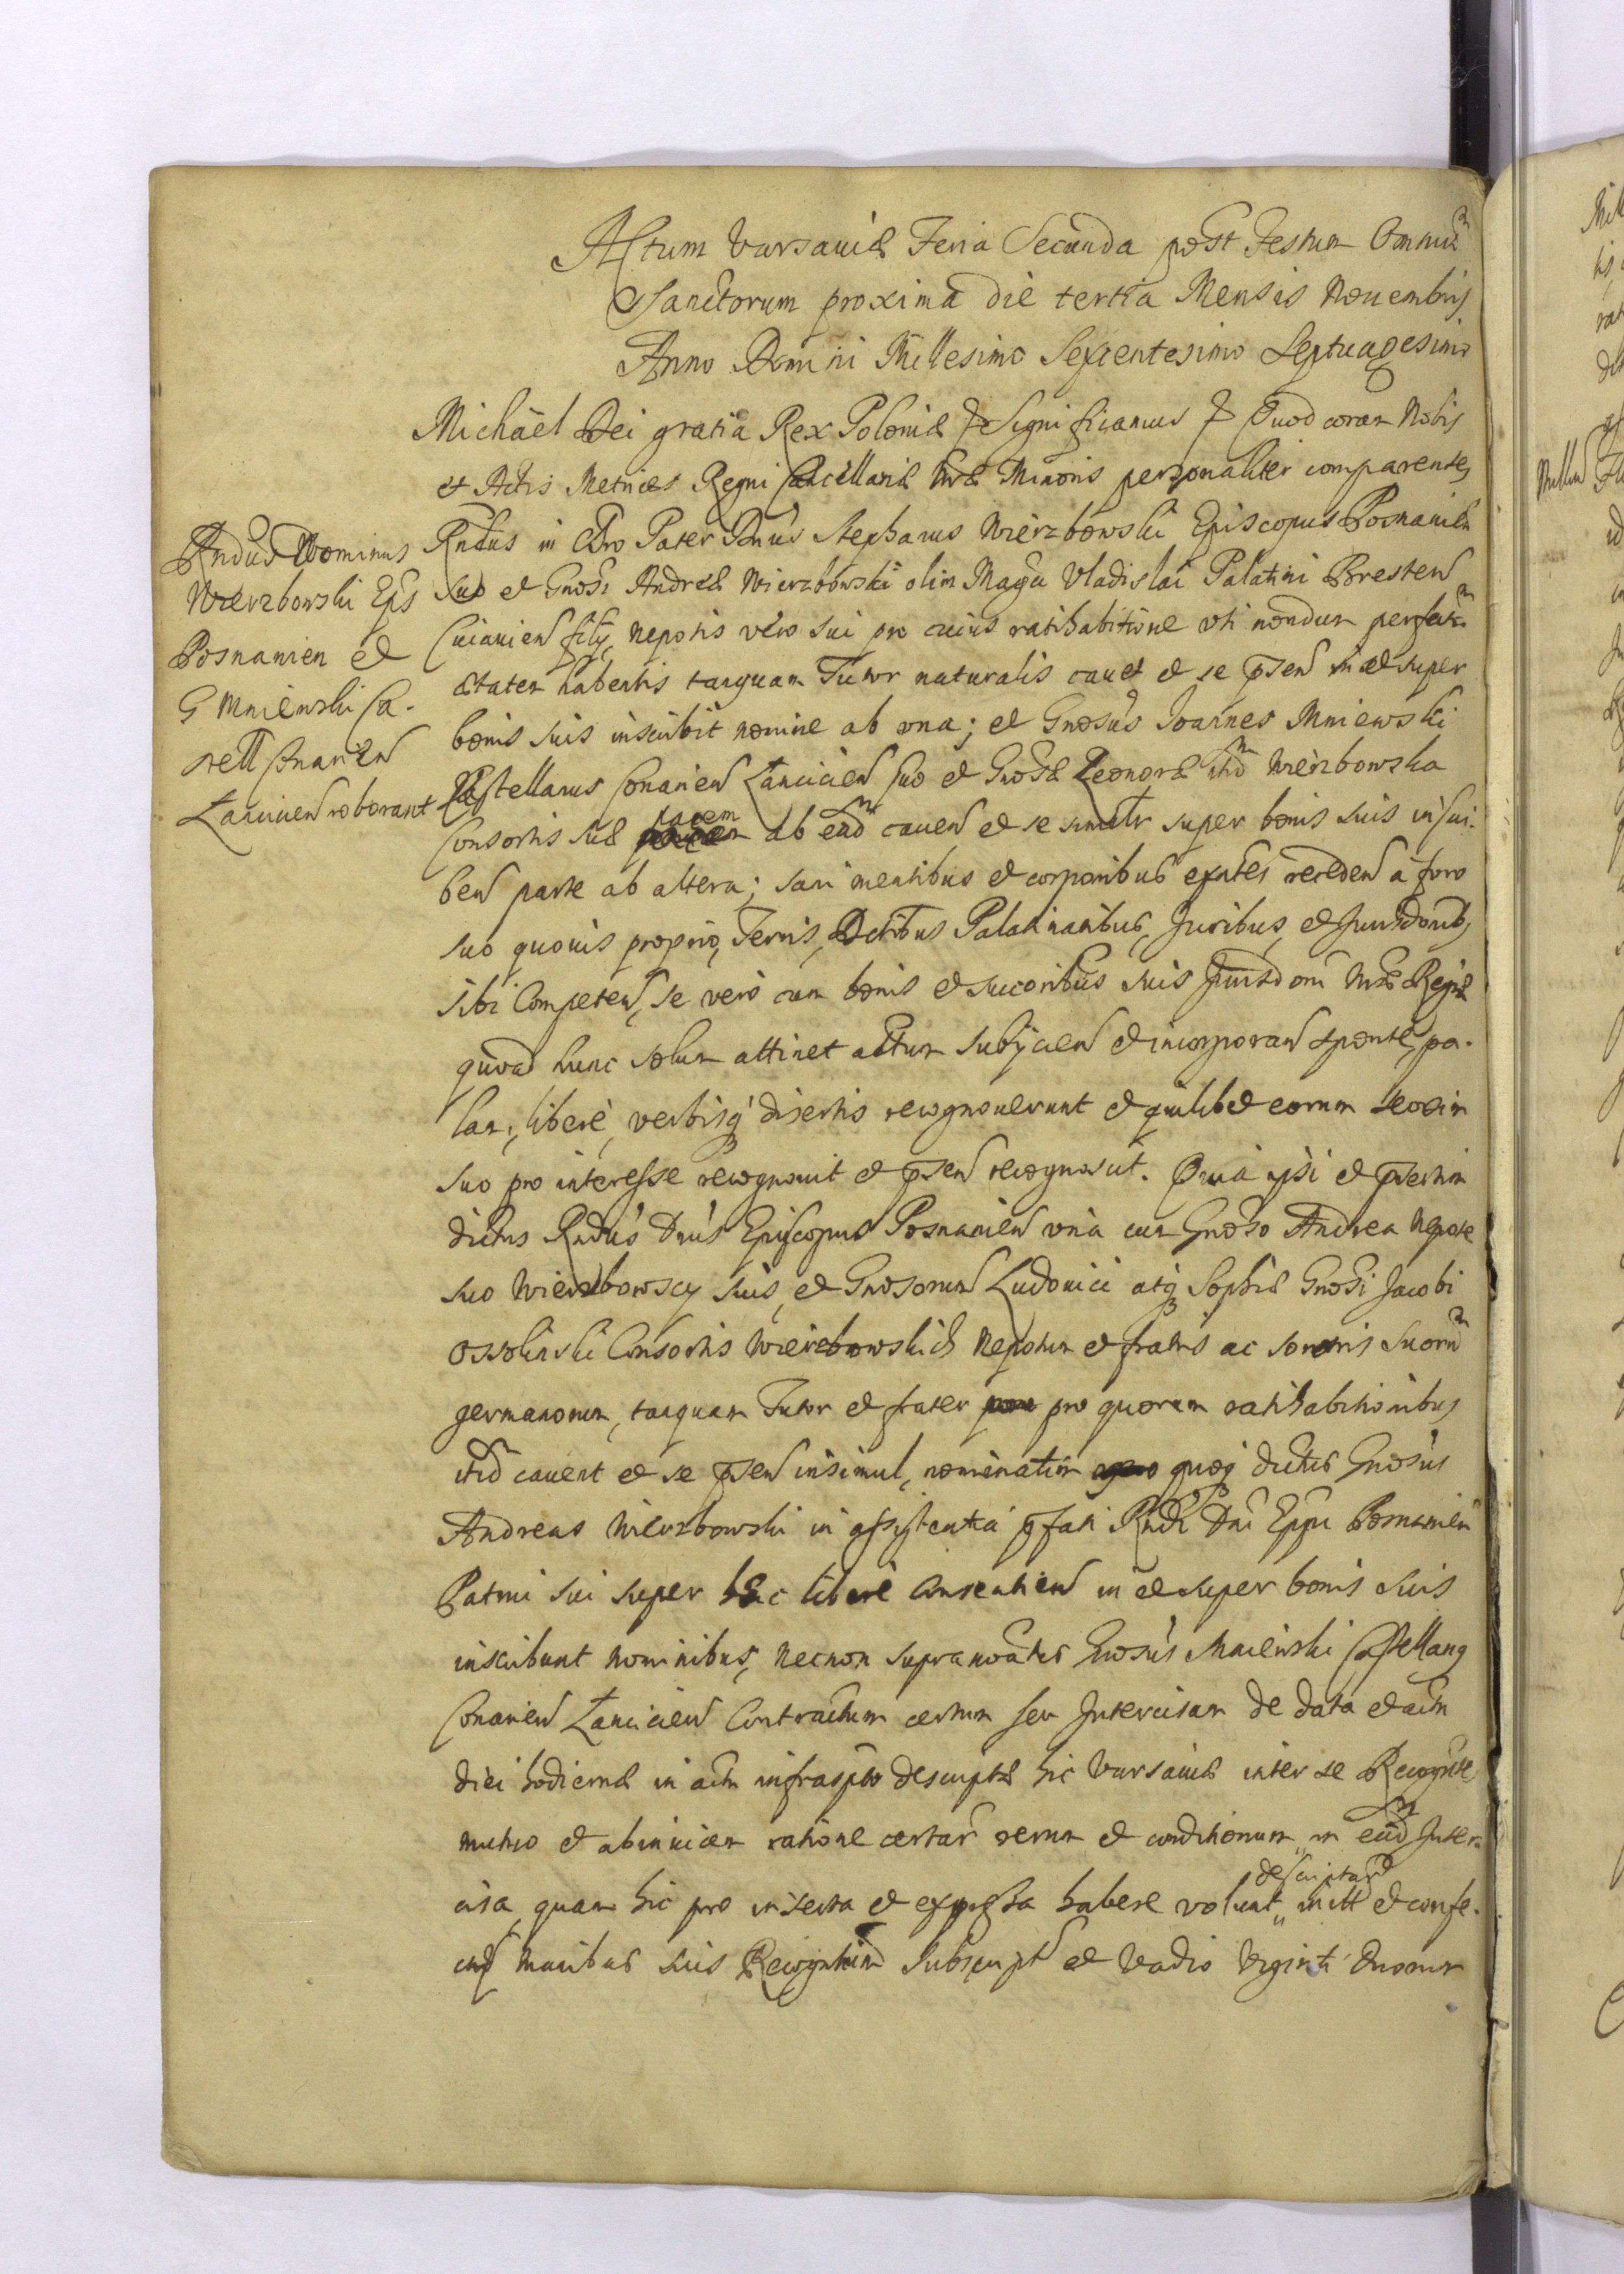 Actum Varsaviæ Feria Secunda post Festum Omniũ
Sanctorum proxima die tertia Mensis Nouembris
Anno Domini Millesimo Sexcentesimo Septuagesimo
Michaël Dei gratia Rex Poloniæ Significamus Quod coram Nobis
et Actis Metrices Regni Cancellariæ Nræ Minoris personaliter comparentes
Rndus in Chro Pater Dnus Stephanus Wierzbowski Episcopus Posnanien
suo et Gnosi Andreæ Wierzbowski olim Magci Vladislai Palatini Bresten
Cuiavien filij, nepotis vero sui pro cuius ratihabitione uti nondum perfectã
ætatem habentis tanquam Tutor naturalis cauet et se psen in et super
bonis suis inscribit nomine ab una; et Gnosus Joannes Mniewski
Castellanus Conarien Lancicien suo et Gnosæ Leonoræ Wierzbowska
Consortis suæ pacem ab eãd cauen et se simlr super bonis suis inscri-
ben parte ab altera; sani mentibus et corporibus exntes receden a foro
suo quouis proprio, Terris, Dctibus Palatinatibus, Juribus, et Jurisdonib,
sibi Competen, se vero cum bonis et succoribus suis Jurisdoni Nræ Regiæ
quoad hunc solum attinet actum subijcien et incorporan sponte, pa-
lam, liberè, verbisq disertis recognouerunt et quilibet eorum seorsim
suo pro interesse recognouit et psen recognoscit. Quia ipsi et psertim
dictus Rndus Dnus Episcopus Posnanien unà cum Gnoso Andrea Nepote
suo Wierzbowscy suis, et Gnosorum Ludouici atq Sophiæ Gnosi Jacobi
Ossolinski Consortis Wierzbowskich Nepotum et fratris ac sororis suorũ
germanorum, tanquam Tutor et frater pro quorum ratihabitionibus
itid cauent et se psen insimul, nominatim quoq dictus Gnosus
Andreas Wierzbowski in assistentia pfati Rndi Dni Eppi Posnanien
Patrui sui super hæc liberè consentien in et super bonis suis
inscribunt nominibus, necnon supranoatus Gnosus Mniewski Castellanq
Conarien Lancicien Contractum certum seu Intercisam de data et actu
diei hodiernæ in actu infrascpto descriptæ hic Varsaviæ inter se Recogntes
mutuo et abinuicem ratione certar rerum et conditionum, in eãd Inter-
cisa, quam hic pro inserta et expressa habere volunt, descriptar init et confe-
ctã manibus suis Recogntium Subscript et Vadio Viginti duorum
Rndus Dominus
Wierzbowski Eps
Posnanien et
G Mniewski Ca-
stell Conarien
Lancicien roborant